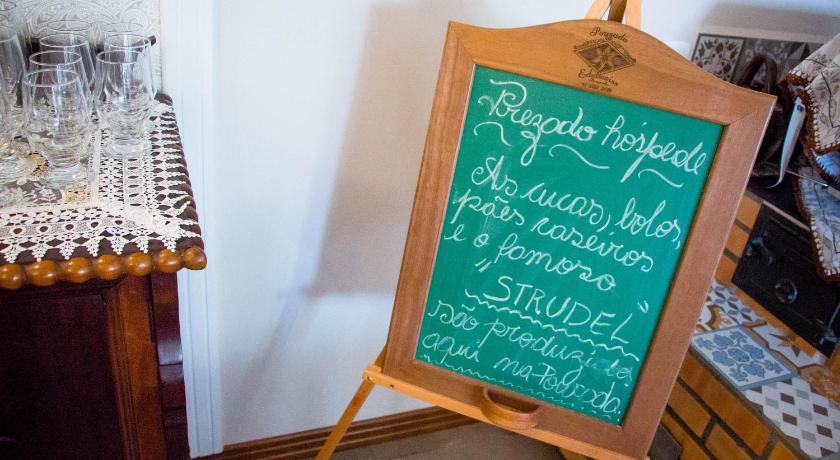 Pouzada
Edelweiss
Prezado hóspede
As cucas, bolos,
pães caseiros
e o famoso
"STRUDEL"
são produzidos
aqui na Pousada.